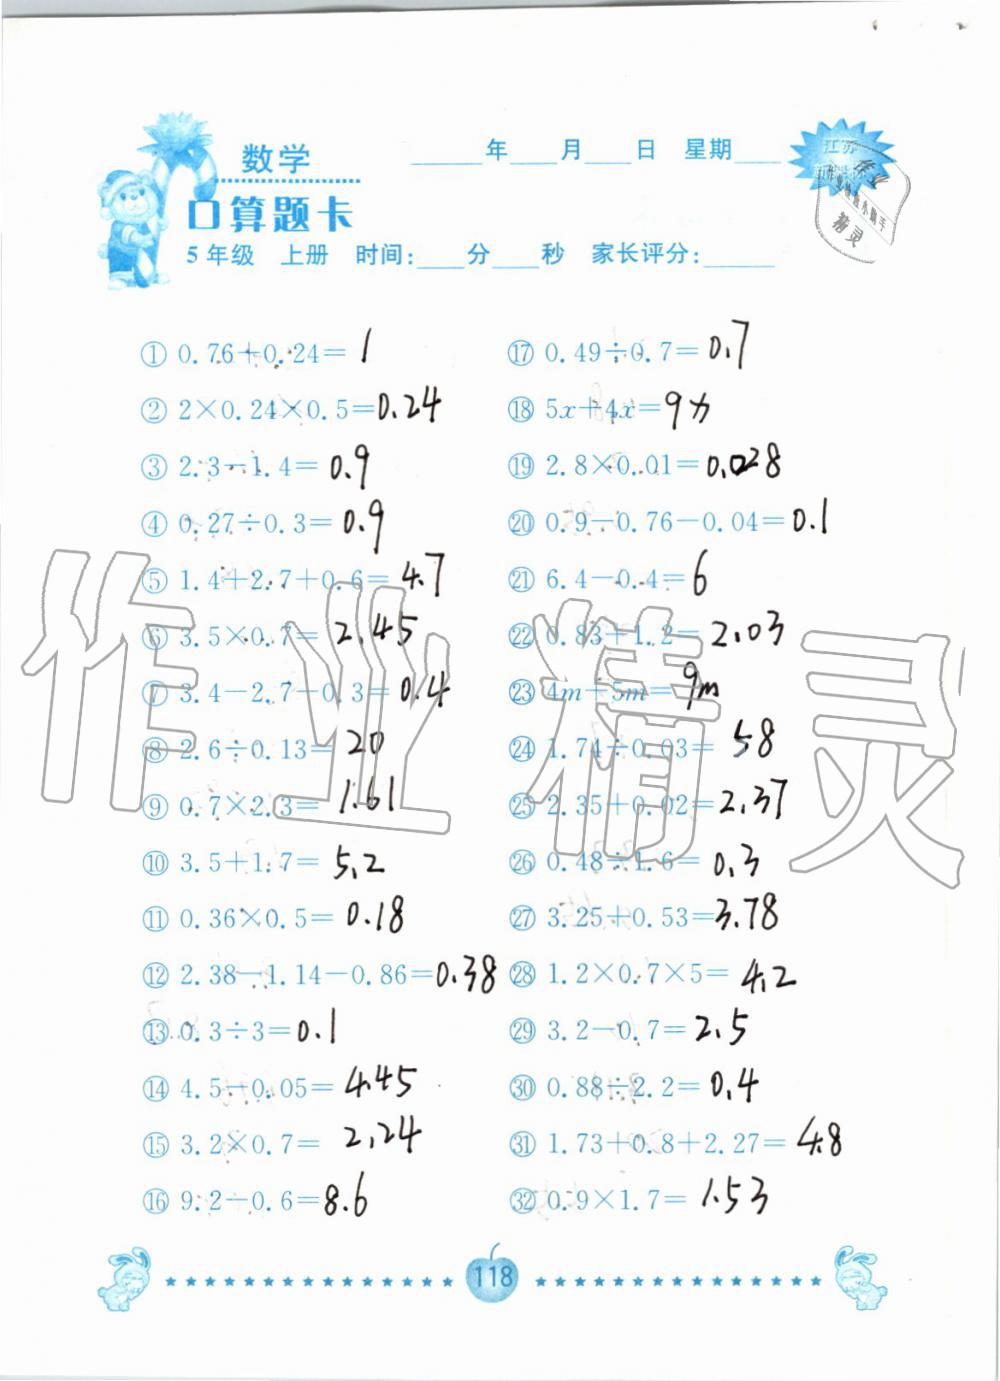 数学
____年____月____日 星期____
江苏
口算题卡
5年级 上册 时间:____分____秒 家长评分:____
① 0.76+0.24=1
② 2×0.24×0.5=0.24
③ 2.3-1.4=0.9
④ 0.27÷0.3=0.9
⑤ 1.4+2.7+0.6=4.7
⑥ 3.5×0.7=2.45
⑦ 3.4-2.7-0.3=0.4
⑧ 2.6÷0.13=20
⑨ 0.7×2.3=1.61
⑩ 3.5+1.7=5.2
⑪ 0.36×0.5=0.18
⑫ 2.38-1.14-0.86=0.38
⑬ 0.3÷3=0.1
⑭ 4.5-0.05=4.45
⑮ 3.2×0.7=2.24
⑯ 9.2-0.6=8.6
⑰ 0.49÷0.7=0.7
⑱ 5x+4x=9x
⑲ 2.8×0.01=0.028
⑳ 0.9-0.76-0.04=0.1
㉑ 6.4-0.4=6
㉒ 0.83+1.2=2.03
㉓ 4m+5m=9m
㉔ 1.74÷0.03=58
㉕ 2.35+0.02=2.37
㉖ 0.48÷1.6=0.3
㉗ 3.25+0.53=3.78
㉘ 1.2×0.7×5=4.2
㉙ 3.2-0.7=2.5
㉚ 0.88÷2.2=0.4
㉛ 1.73+0.8+2.27=4.8
㉜ 0.9×1.7=1.53
118
作业精灵